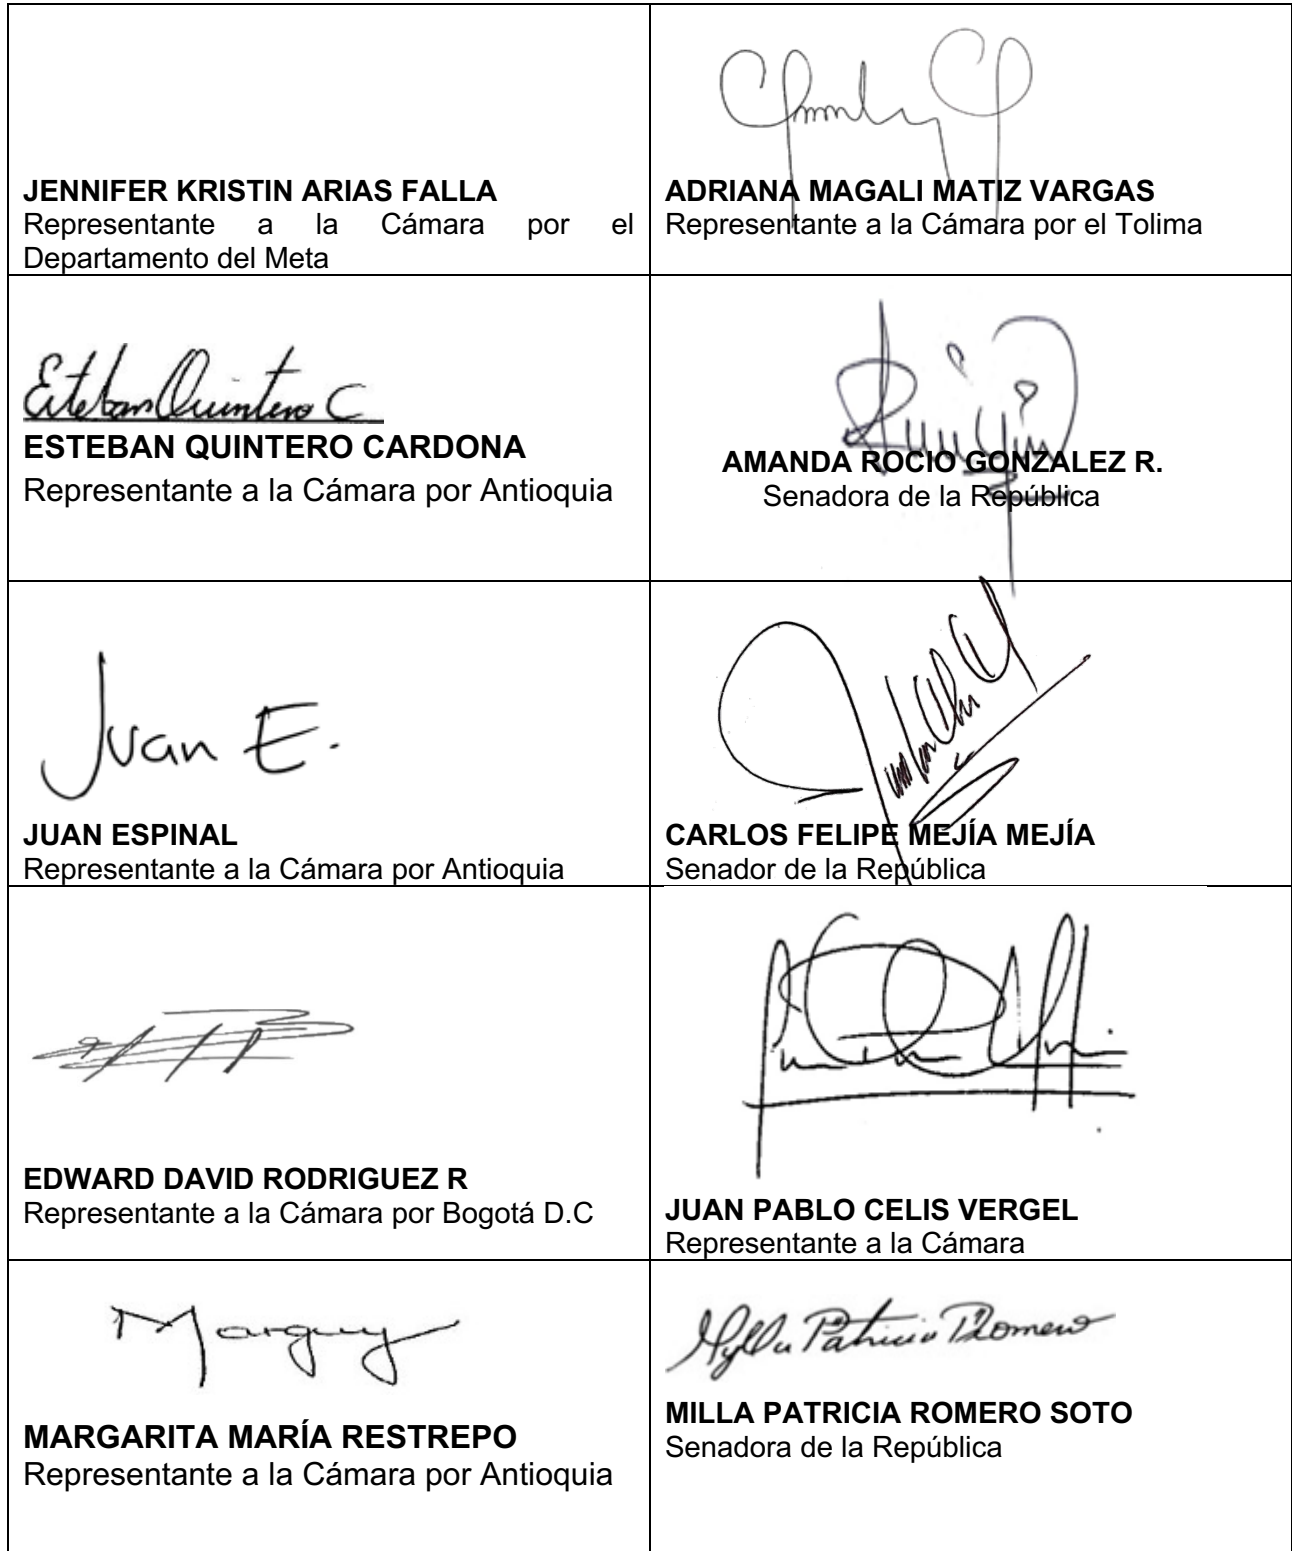 JENNIFER KRISTIN ARIAS FALLA
Representante a la Cámara por el
Departamento del Meta
ADRIANA MAGALI MATIZ VARGAS
Representante a la Cámara por el Tolima
Esteban Quintero C
ESTEBAN QUINTERO CARDONA
Representante a la Cámara por Antioquia
AMANDA ROCIO GONZALEZ R.
Senadora de la República
Juan E.
JUAN ESPINAL
Representante a la Cámara por Antioquia
CARLOS FELIPE MEJÍA MEJÍA
Senador de la República
EDWARD DAVID RODRIGUEZ R
Representante a la Cámara por Bogotá D.C
JUAN PABLO CELIS VERGEL
Representante a la Cámara
Marguy
MARGARITA MARÍA RESTREPO
Representante a la Cámara por Antioquia
Mylla Patricia Romero
MILLA PATRICIA ROMERO SOTO
Senadora de la República